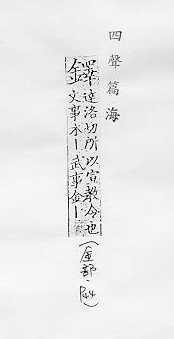 四聲篇海
鐸
達洛切所以宣教令也
文事木丨武事金丨
(金部·P44)